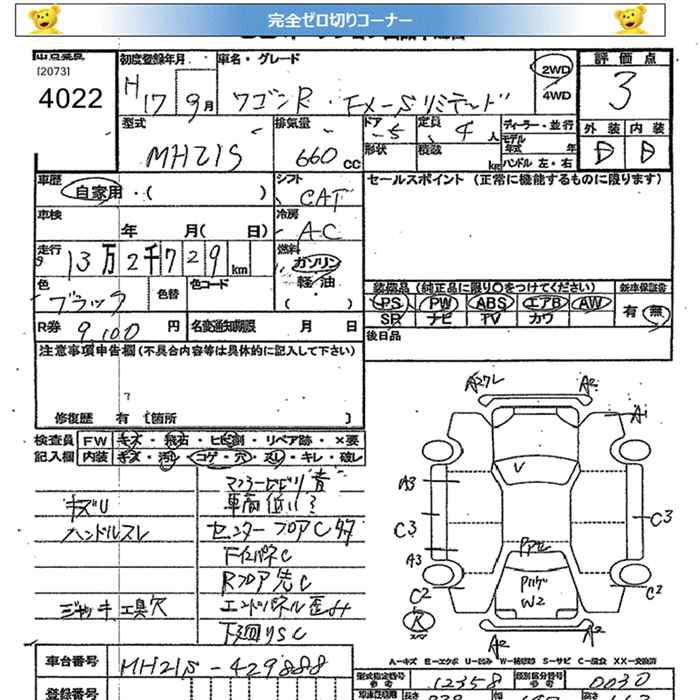 完全ゼロ切りコーナー
[2073]
4022
初度登録年月
H17 9月
車名・グレード
ワゴンR・FX-Sリミテッド
2WD
4WD
評価点
3
外装 内装
D D
型式
MH21S
排気量
660cc
ドア 5
形状
定員 4人
積載 kg
ディーラー・並行
モデル年式 年
ハンドル 左・右
車歴
自家用・( )
シフト
CAT
セールスポイント (正常に機能するものに限ります)
車検
年 月( 日)
冷房
AC
走行
13万2千729km
燃料
ガソリン
軽・油
( ・ )
色
ブラック
色替
色コード
装備品 (純正品に限り○をつけてください)
PS PW ABS エアB AW
SR ナビ TV カワ
新車保証書
有・無
R券
9,100円
名変通知期限 月 日
後日品
注意事項申告欄 (不具合内容等は具体的に記入して下さい)
修復歴 有 〔箇所 〕
検査員記入欄
FW キズ・飛石・ヒビ割・リペア跡・×要
内装 キズ・汚レ・コゲ・穴・スレ・キレ・破レ
キズU
ハンドルスレ
ジャッキ、工具欠
車高低い
センターフロアC
Rフロア先C
エンドパネル歪み
下廻りSC
A2
A1
V
A3
A3
C3
C3
C2
C2
W2
A2
A2
A-キズ E-エクボ U-凹み W-補修跡 S-サビ C-腐食 XX-交換済
車台番号
MH21S-429888
型式指定番号
12358
類別区分番号
0030
登録番号